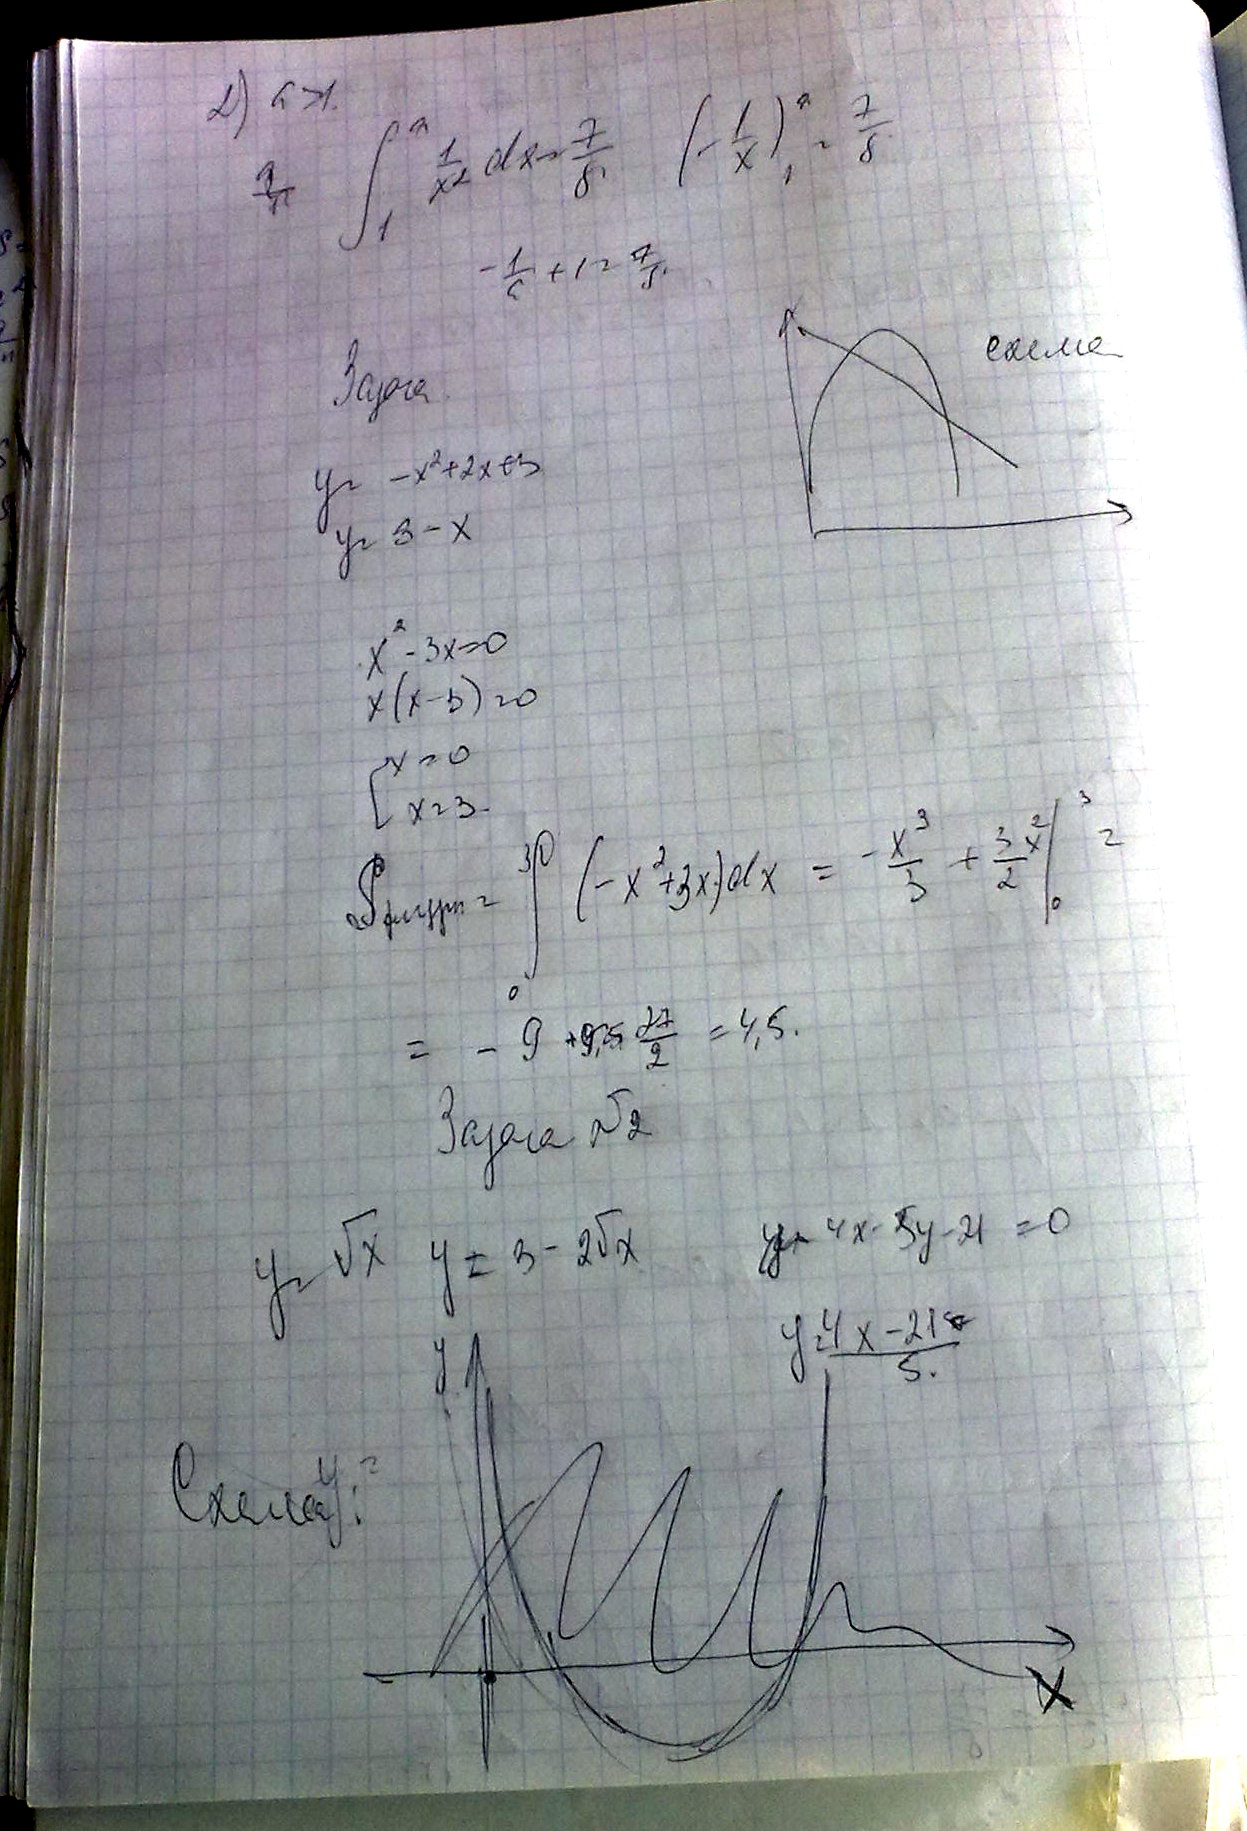 2) a>1.
∫₁ᵃ 1/x² dx = 7/8. (-1/x)₁ᵃ = 7/8.
-1/a + 1 = 7/8.
схема
Задача
y = -x²+2x+3
y = 3 - x
x² - 3x = 0
x(x-3) = 0
[ x = 0
x = 3.
Sфигуры = ∫₀³ (-x²+3x)dx = -x³/3 + 3/2 x² |₀³ =
= - 9 + 27/2 = 4,5.
Задача №2
y = √x y = 3 - 2√x 4x - 5y - 21 = 0
y = 4x - 21 / 5.
y
Схема:
x